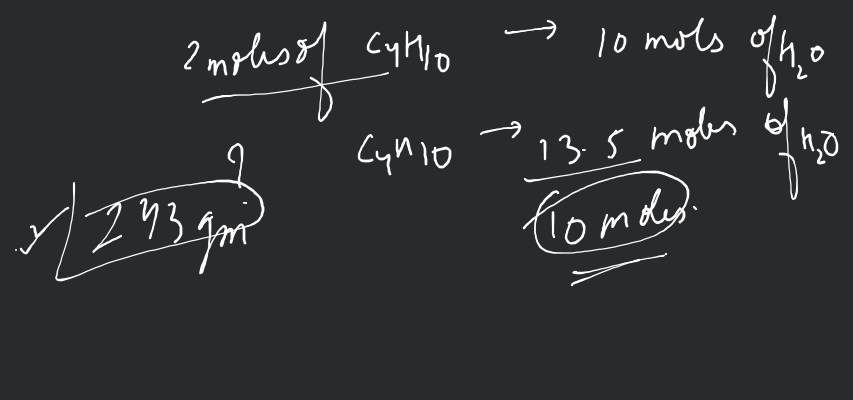 2 moles of C4H10 → 10 mols of H2O
C4H10 → 13.5 moles of H2O
?
243 gm
10 moles.